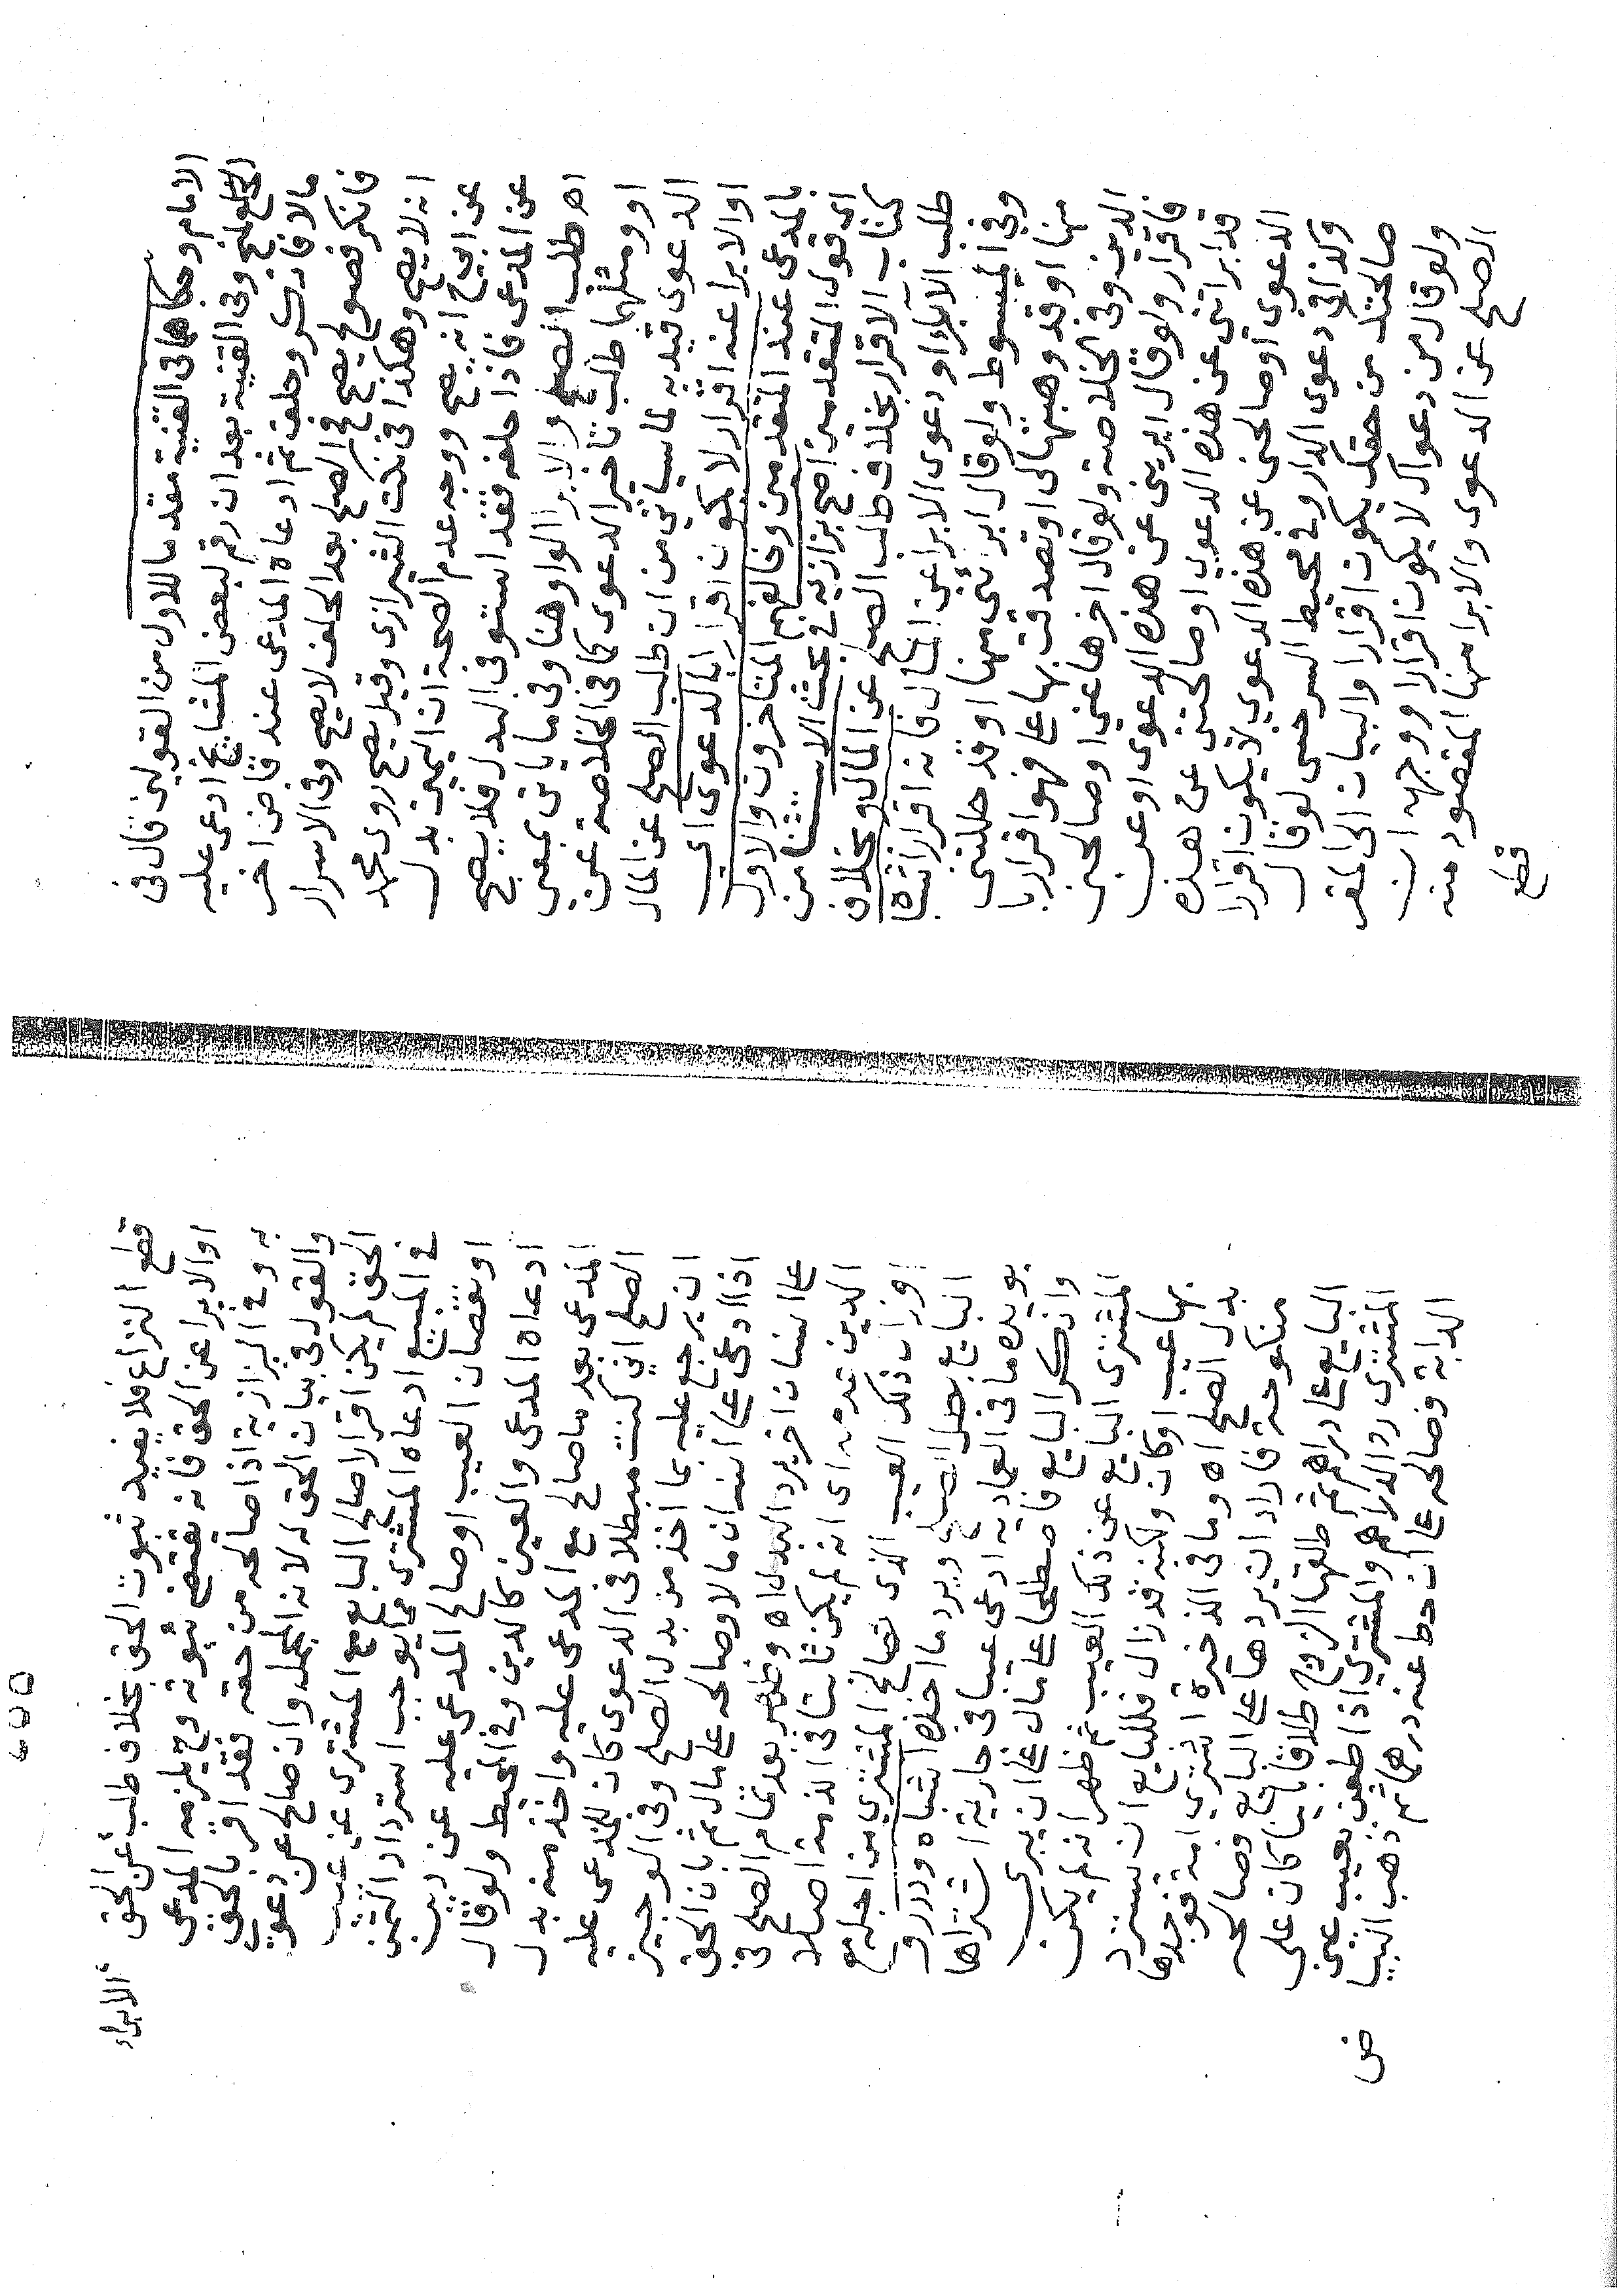 الامام وحكاهما في القنية مقدما للاول من القولين قال في
وفى القنية بعد ان رقم لبعض المشايخ ادعى عليه
مالا فانكر وحلف ثم ادعاه المدعى عند قاض اخر
فانكر فصولح يصح في الصلح بعد الحلف لا يصح وفى الاسرار
انه لا يصح وهكذا فى نكت الشيرازى وقيل يصح روى محمد
عن ابي ح انه يصح ووجه عدم الصحة ان اليمين بدل
عن المدعى فاذا حلفه فقد استوفى البدل فلا يصح
اه طلب الصلح والابرا الواو هنا وفى ما ياتى بمعنى
او ومثلهما طلب تاخير الدعوى كما فى الخلاصة عن
الدعوى قيد به لما سياتى من ان طلب الصلح عن المال
او الابرا عنه اقرار لا يكون اقرارا بالدعوى اي
بالمدعى عند المتقدمين وخالفهم المتاخرون والاول
اى قول المتقدمين اصح بزازيه في بحث الاستثنا من
كتاب الاقرار بخلاف طلب الصلح عن المال وبخلاف
طلب الابرا او دعوى الابرا عن المال فانه اقرار اشباه
وفي المبسوط ولو قال ابرئنى منها او قد حللتنى
منها او قد وهبتها لى او تصدقت بها علي فهو اقرار با
الدين وفى الخلاصة ولو قال اخرها عنى او صالحنى
فاقرار ولو قال ابرينى عن هذه الدعوى او عن
قد ابراتنى عن هذه الدعوي او صالحنى عن هذه
الدعوى او صالحنى عن هذه الدعوي لا يكون اقرارا
وكذا في دعوى الدار وفى محيط السرخسى لو قال
صالحتك من حقك يكون اقرارا والبيان الى المقر
ولو قال من دعواك لا يكون اقرارا ووجهه ان
الصلح عن الدعوى والابرا منها المقصود منه
قطع
قطع النزاع فلا يفيد ثبوت الحق بخلاف طلب عن الحق
الابراء
او الابرا عن الحق فانه يقتضى ثبوته وح يلزمه المدعى
به وفي البزازية اذا صالحه من حقه فقد اقر بالحق
والقول فى بيان الحق له لانه المجمل وان صالح عن دعوى
الحق لم يكن اقرارا صالح البايع مع المشترى عن عيب
في المبيع ادعاه المشترى مما يوجب استرداد الثمن
او نقصان العيب او صالح المدعى عليه عن دين
ادعاه المدعى والعين كالدين وفى المحيط ولو قال
المدعى بعد ما صالح مع المدعى عليه واخذ منه بدل
الصلح اني كنت مبطلا فى الدعوى كان للمدعى عليه
ان يرجع عليه بما اخذ من بدل الصلح وفى الوجيز
اذا ادعى على انسان مالا وصالحه على مال ثم بان الحق
على انسان اخر يرد البدل اه وظهر بعد تمام الصلح
الدين عدمه اى انه لم يكن ثابتا فى الذمة اصلا
او زال ذلك العيب الذى صالح المشترى من اجله مع
البايع بطل الصلح ويرد ما اخذه اشباه ودرر و
يويده ما فى العماديه ادعى عيبا فى جارية اشتراها
وانكر البايع فاصطلحا على مال على ان يبرى
المشترى البايع عن ذلك العيب ثم ظهر انه لم يكن
بها عيب او كان ولكنه قد زال فللبايع ان يسترد
بدل الصلح اه وما فى الذخيرة اشترى امة فوجدها
منكوحة فاراد ان يردها على البايع فصالحه
البايع على دراهم ثم طلقها الزوج طلاقا باينا كان على
المشترى رد الدراهم والمشتري اذا طعن بعيب عين
الدابة وصالحه على ان حط عنه درهما ثم ذهب البيا
ض